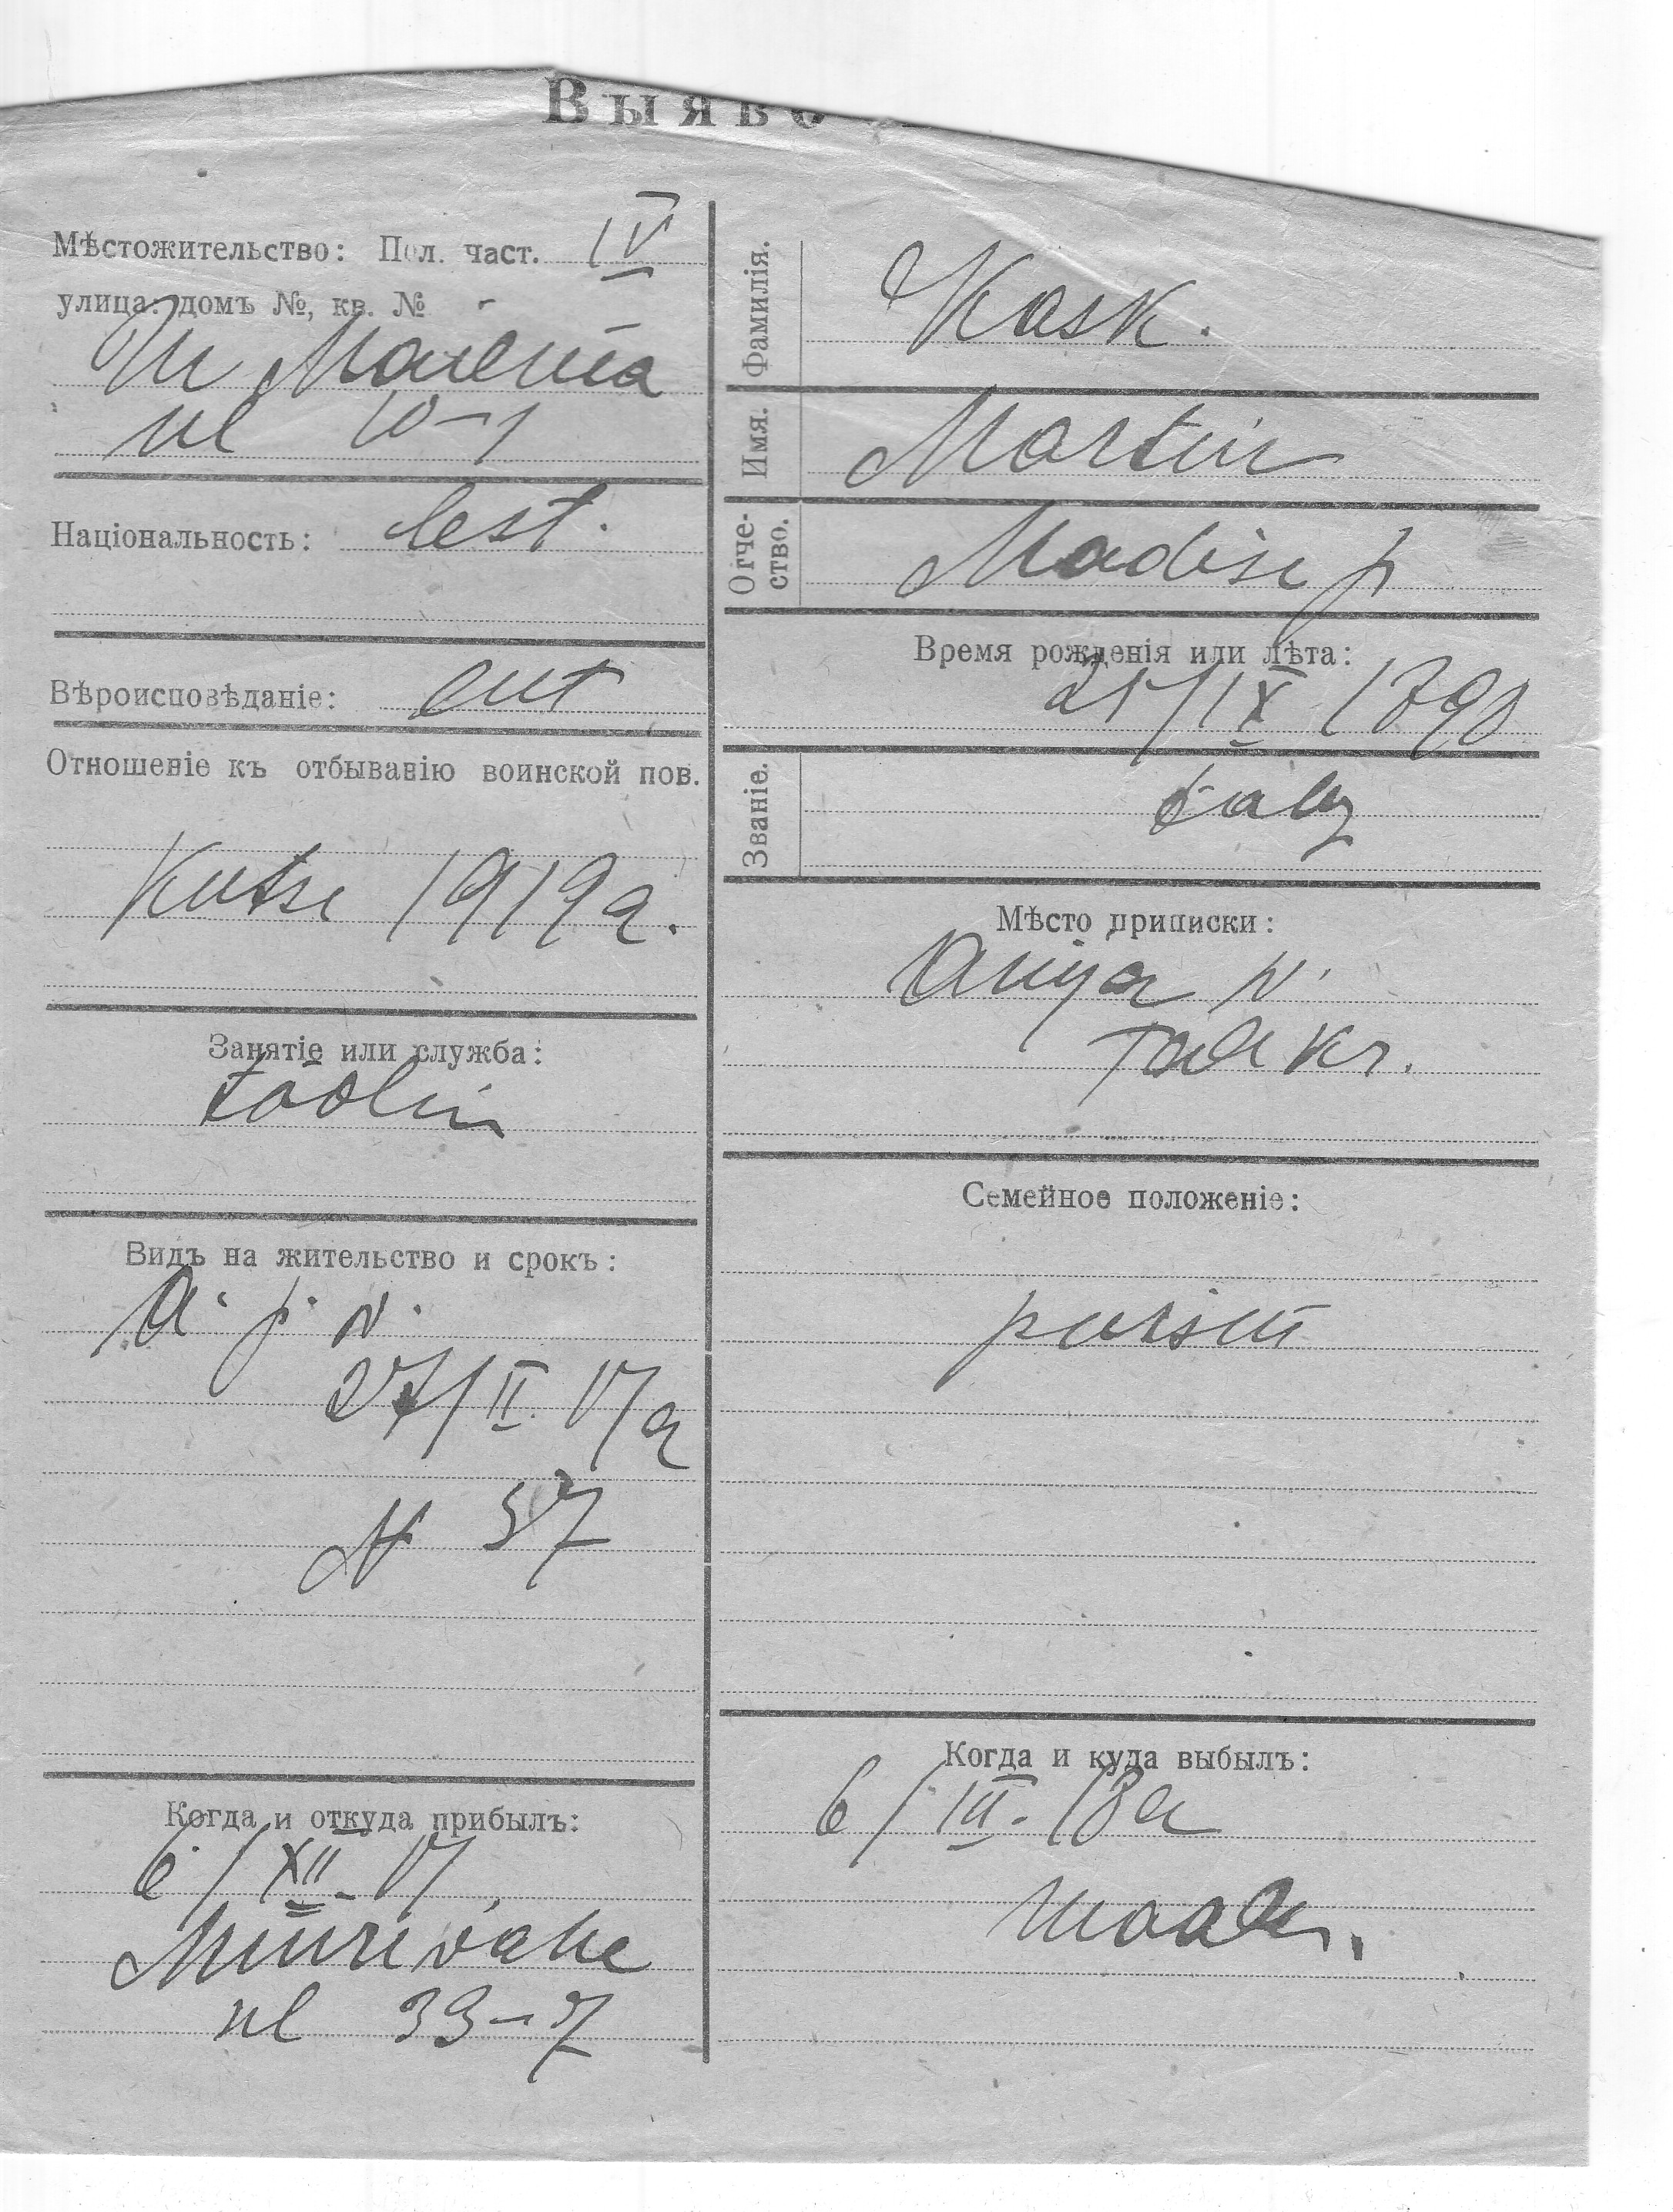 Выяво
Мѣстожительство: Пол. част. IV
улица: домъ №, кв. № -
ul 10-1
Національность: Eest.
Вѣроисповѣданіе: Lut
Отношеніе къ отбыванію воинской пов.
Kutse 1919 a.
Занятіе или служба:
tööline
Видъ на жительство и срокъ:
A. p. v.
27/II. 17 a
№ 37
Когда и откуда прибылъ:
6/XII 17
Müürivahe
ul 33-7
Фамилія. Kask.
Имя. Martin
Отче-
ство. Madise p
Время рожденія или лѣта:
25/IX 1898
Званіе. talup
Мѣсто приписки:
Anija v.
Tall kr.
Семейное положеніе:
poisim
Когда и куда выбылъ:
6/III. 18 a
maale.